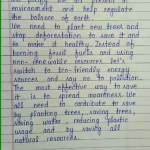 environment and help regulate
the balance of earth.
We need to plant new trees and
stop deforestation to save it and
to make it healthy. Instead of
burning fossil fuels and using
non-renewable resources let's
switch to eco-friendly energy
sources and say no to pollution.
The most effective way to save
it is to spread awareness. We
all need to contribute to save
by planting trees, saving trees,
saving water, reducing plastic
usage and by saving all
natural resources.